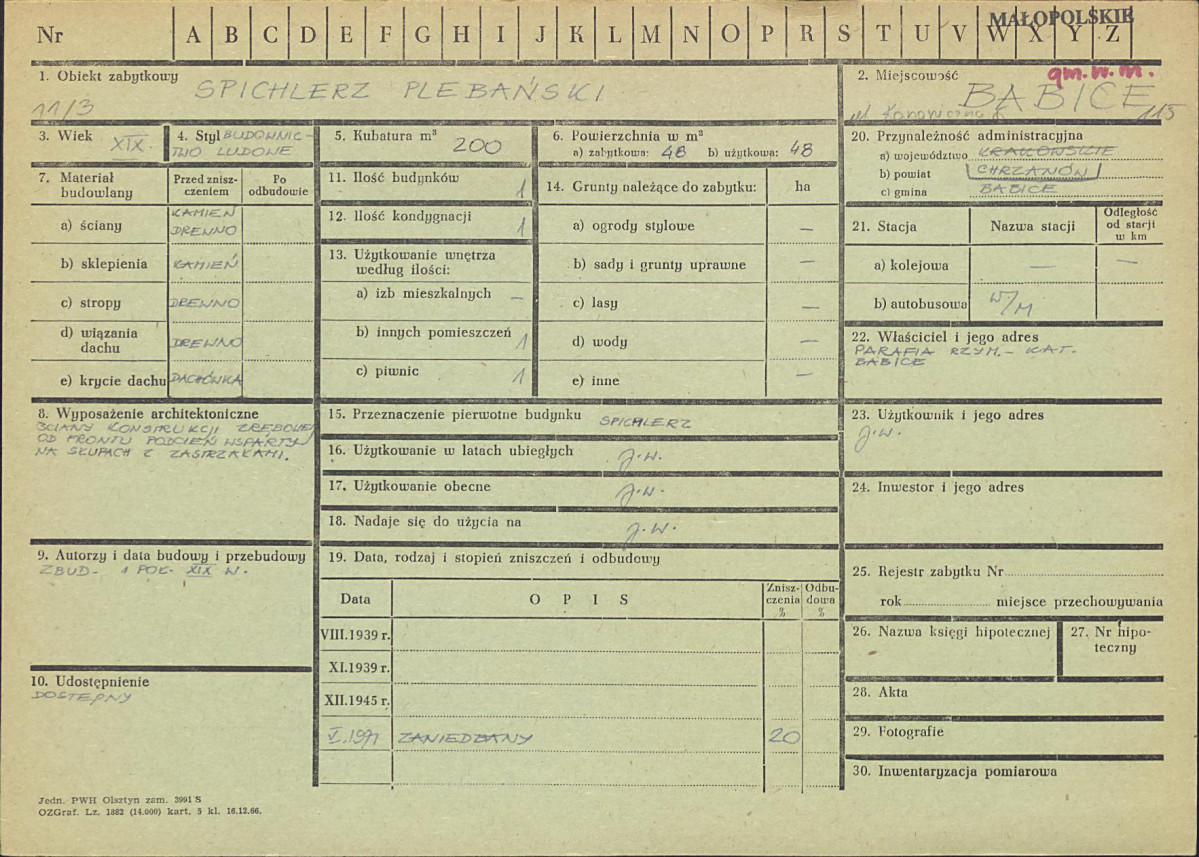 MAŁOPOLSKIE
Nr A B C D E F G H I J K L M N O P R S T U V W X Y Z
1. Obiekt zabytkowy
SPICHLERZ PLEBAŃSKI
11/3
2. Miejscowość
gm.w.m.
BABICE
ul. 115
3. Wiek XIX.
4. Styl BUDOWNIC-
TWO LUDOWE
5. Kubatura m³
200
6. Powierzchnia w m²
a) zabytkowa: 48 b) użytkowa: 48
7. Materiał budowlany
Przed znisz-
czeniem
Po
odbudowie
a) ściany KAMIEŃ
DREWNO
b) sklepienia KAMIEŃ
c) stropy DREWNO
d) wiązania
dachu DREWNO
e) krycie dachu DACHÓWKA
8. Wyposażenie architektoniczne
ŚCIANY KONSTRUKCJI ZRĘBOWEJ
OD FRONTU PODCIEŃ WSPARTY
NA SŁUPACH Z ZASTRZAŁAMI.
9. Autorzy i data budowy i przebudowy
ZBUD. 1 POŁ. XIX W.
10. Udostępnienie
DOSTĘPNY
11. Ilość budynków 1
12. Ilość kondygnacji 1
13. Użytkowanie wnętrza
według ilości:
a) izb mieszkalnych —
b) innych pomieszczeń 1
c) piwnic 1
14. Grunty należące do zabytku: ha
a) ogrody stylowe —
b) sady i grunty uprawne —
c) lasy —
d) wody —
e) inne —
15. Przeznaczenie pierwotne budynku SPICHLERZ
16. Użytkowanie w latach ubiegłych j.w.
17. Użytkowanie obecne j.w.
18. Nadaje się do użycia na j.w.
19. Data, rodzaj i stopień zniszczeń i odbudowy
Data O P I S Znisz-
czenia
% Odbu-
dowa
%
VIII.1939 r.
XI.1939 r.
XII.1945 r.
V.1971 ZANIEDBANY 20
20. Przynależność administracyjna
a) województwo KRAKOWSKIE
b) powiat CHRZANÓW
c) gmina BABICE
21. Stacja Nazwa stacji Odległość
od stacji
w km
a) kolejowa — —
b) autobusowa W/M
22. Właściciel i jego adres
PARAFIA RZYM.-KAT.
BABICE
23. Użytkownik i jego adres
j.w.
24. Inwestor i jego adres
25. Rejestr zabytku Nr
rok miejsce przechowywania
26. Nazwa księgi hipotecznej
27. Nr hipo-
teczny
28. Akta
29. Fotografie
30. Inwentaryzacja pomiarowa
Jedn. PWH Olsztyn zam. 3991 S
OZGraf. Lz. 1882 (14.000) kart. 5 kl. 16.12.66.